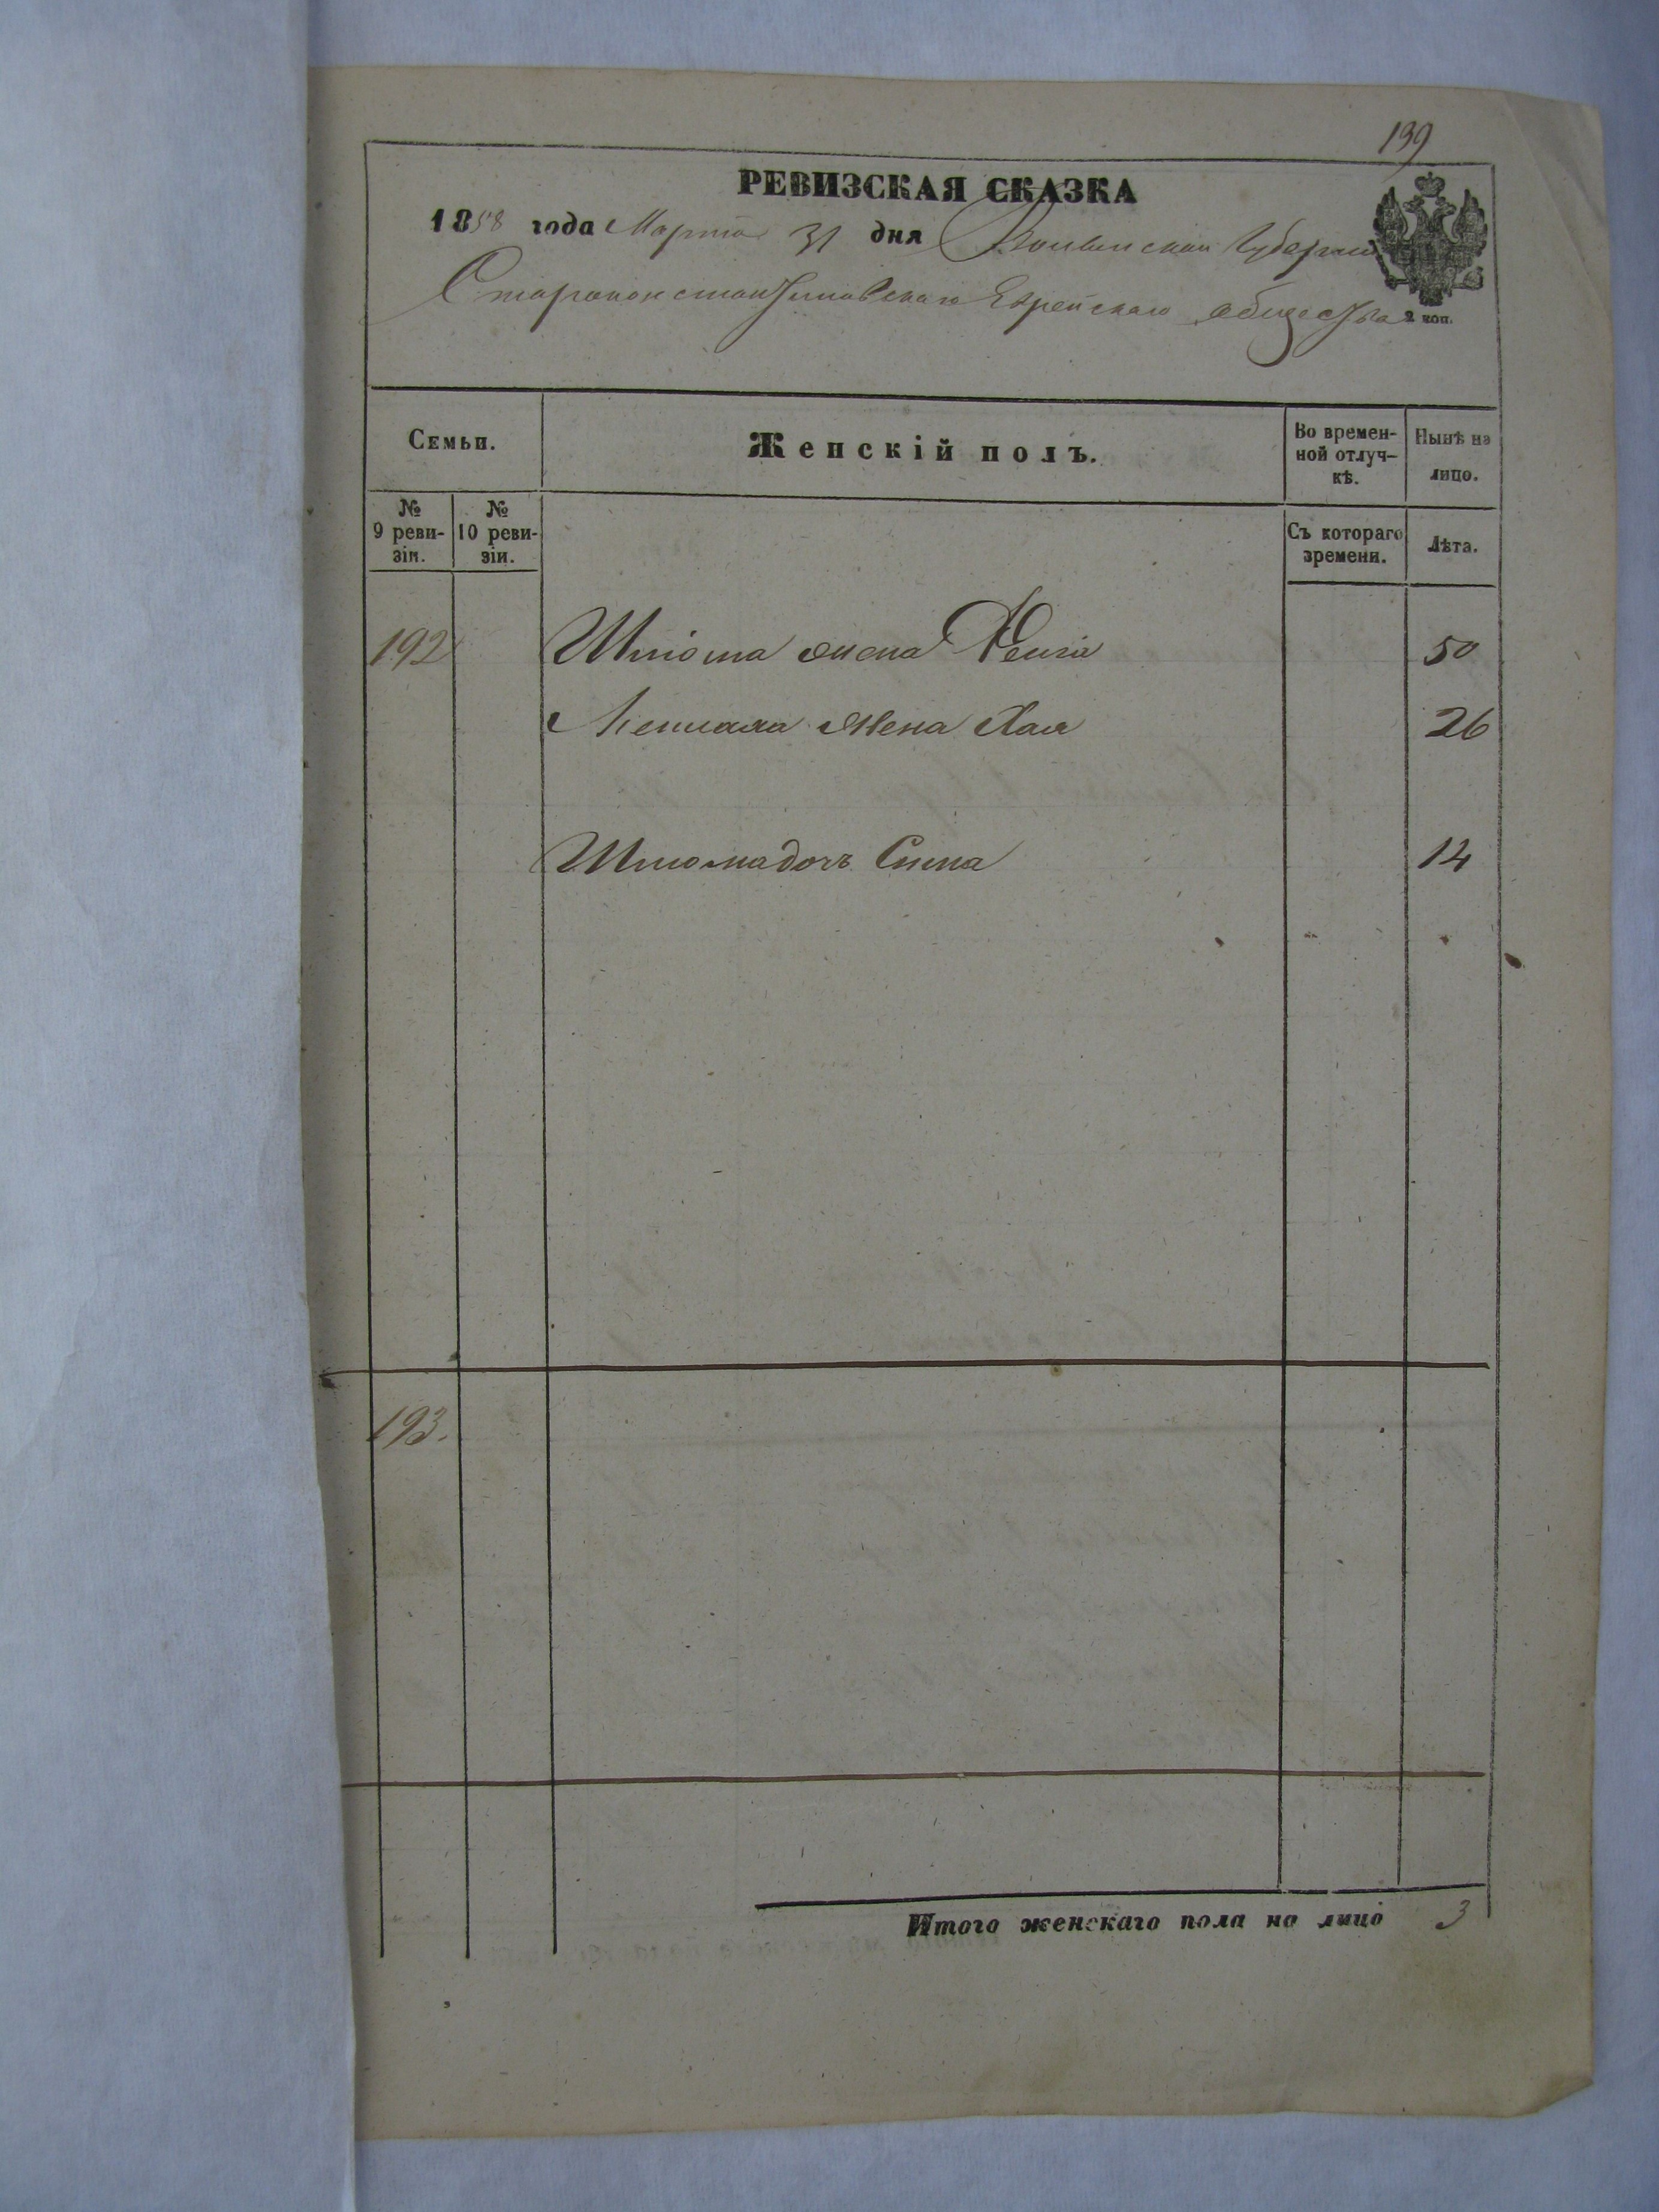 139
РЕВИЗСКАЯ СКАЗКА
1858 года Марта 31 дня Волынской Губернии
Староконстантиновскаго Еврейскаго общества
2 коп.
Семьи.
Женскій полъ.
Во времен-
ной отлуч-
кѣ.
Нынѣ на
лицо.
№
9 реви-
зіи.
№
10 реви-
зіи.
Съ котораго
времени.
Лѣта.
192 жена 50
жена Хая 26
дочь 14
193.
Итого женскаго пола на лицо 3